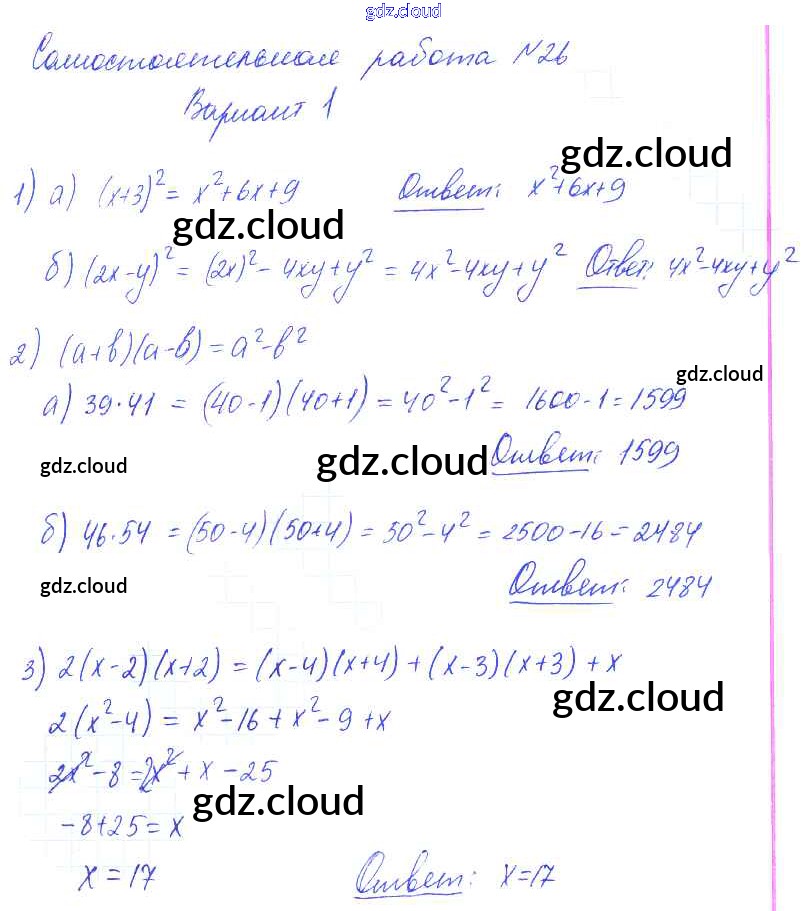 gdz.cloud
Самостоятельная работа №26
Вариант 1
gdz.cloud
1) а) (x+3)² = x²+6x+9 Ответ: x²+6x+9
gdz.cloud
б) (2x-y)² = (2x)² - 4xy + y² = 4x²-4xy+y² Ответ: 4x²-4xy+y²
2) (a+b)(a-b) = a²-b²
gdz.cloud
а) 39·41 = (40-1)(40+1) = 40²-1² = 1600-1 = 1599
gdz.cloud gdz.cloud Ответ: 1599
б) 46·54 = (50-4)(50+4) = 50²-4² = 2500-16 = 2484
gdz.cloud Ответ: 2484
3) 2(x-2)(x+2) = (x-4)(x+4) + (x-3)(x+3) + x
gdz.cloud
2(x²-4) = x²-16 + x²-9 + x
2x²-8 = 2x² + x - 25
gdz.cloud
-8+25 = x
x = 17 Ответ: x=17